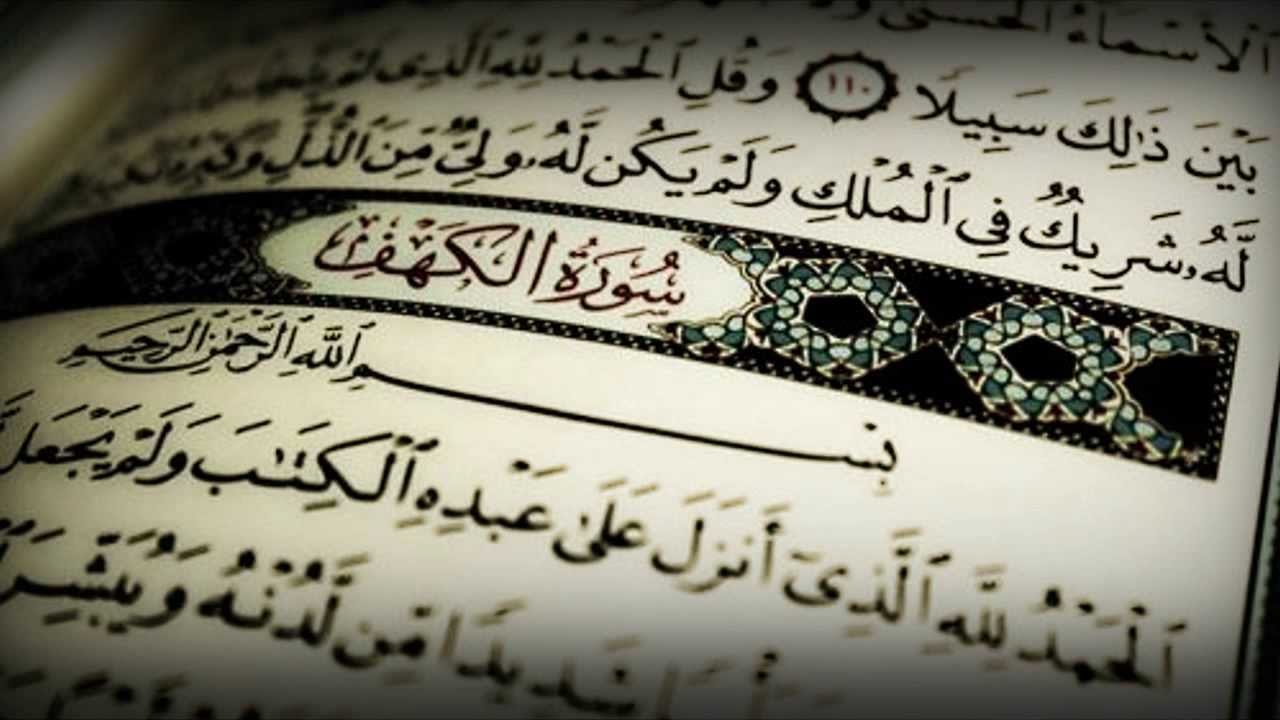 ٱلۡأَسۡمَآءُ ٱلۡحُسۡنَىٰ
بَيۡنَ ذَٰلِكَ سَبِيلٗا ١١٠ وَقُلِ ٱلۡحَمۡدُ لِلَّهِ ٱلَّذِي لَمۡ
لَّهُۥ شَرِيكٞ فِي ٱلۡمُلۡكِ وَلَمۡ يَكُن لَّهُۥ وَلِيّٞ مِّنَ ٱلذُّلِّ وَكَبِّرۡهُ
سُورَةُ الكَهۡفِ
بِسۡمِ ٱللَّهِ ٱلرَّحۡمَٰنِ ٱلرَّحِيمِ
ٱلۡحَمۡدُ لِلَّهِ ٱلَّذِيٓ أَنزَلَ عَلَىٰ عَبۡدِهِ ٱلۡكِتَٰبَ وَلَمۡ يَجۡعَل
شَدِيدٗا مِّن لَّدُنۡهُ وَيُبَشِّرَ